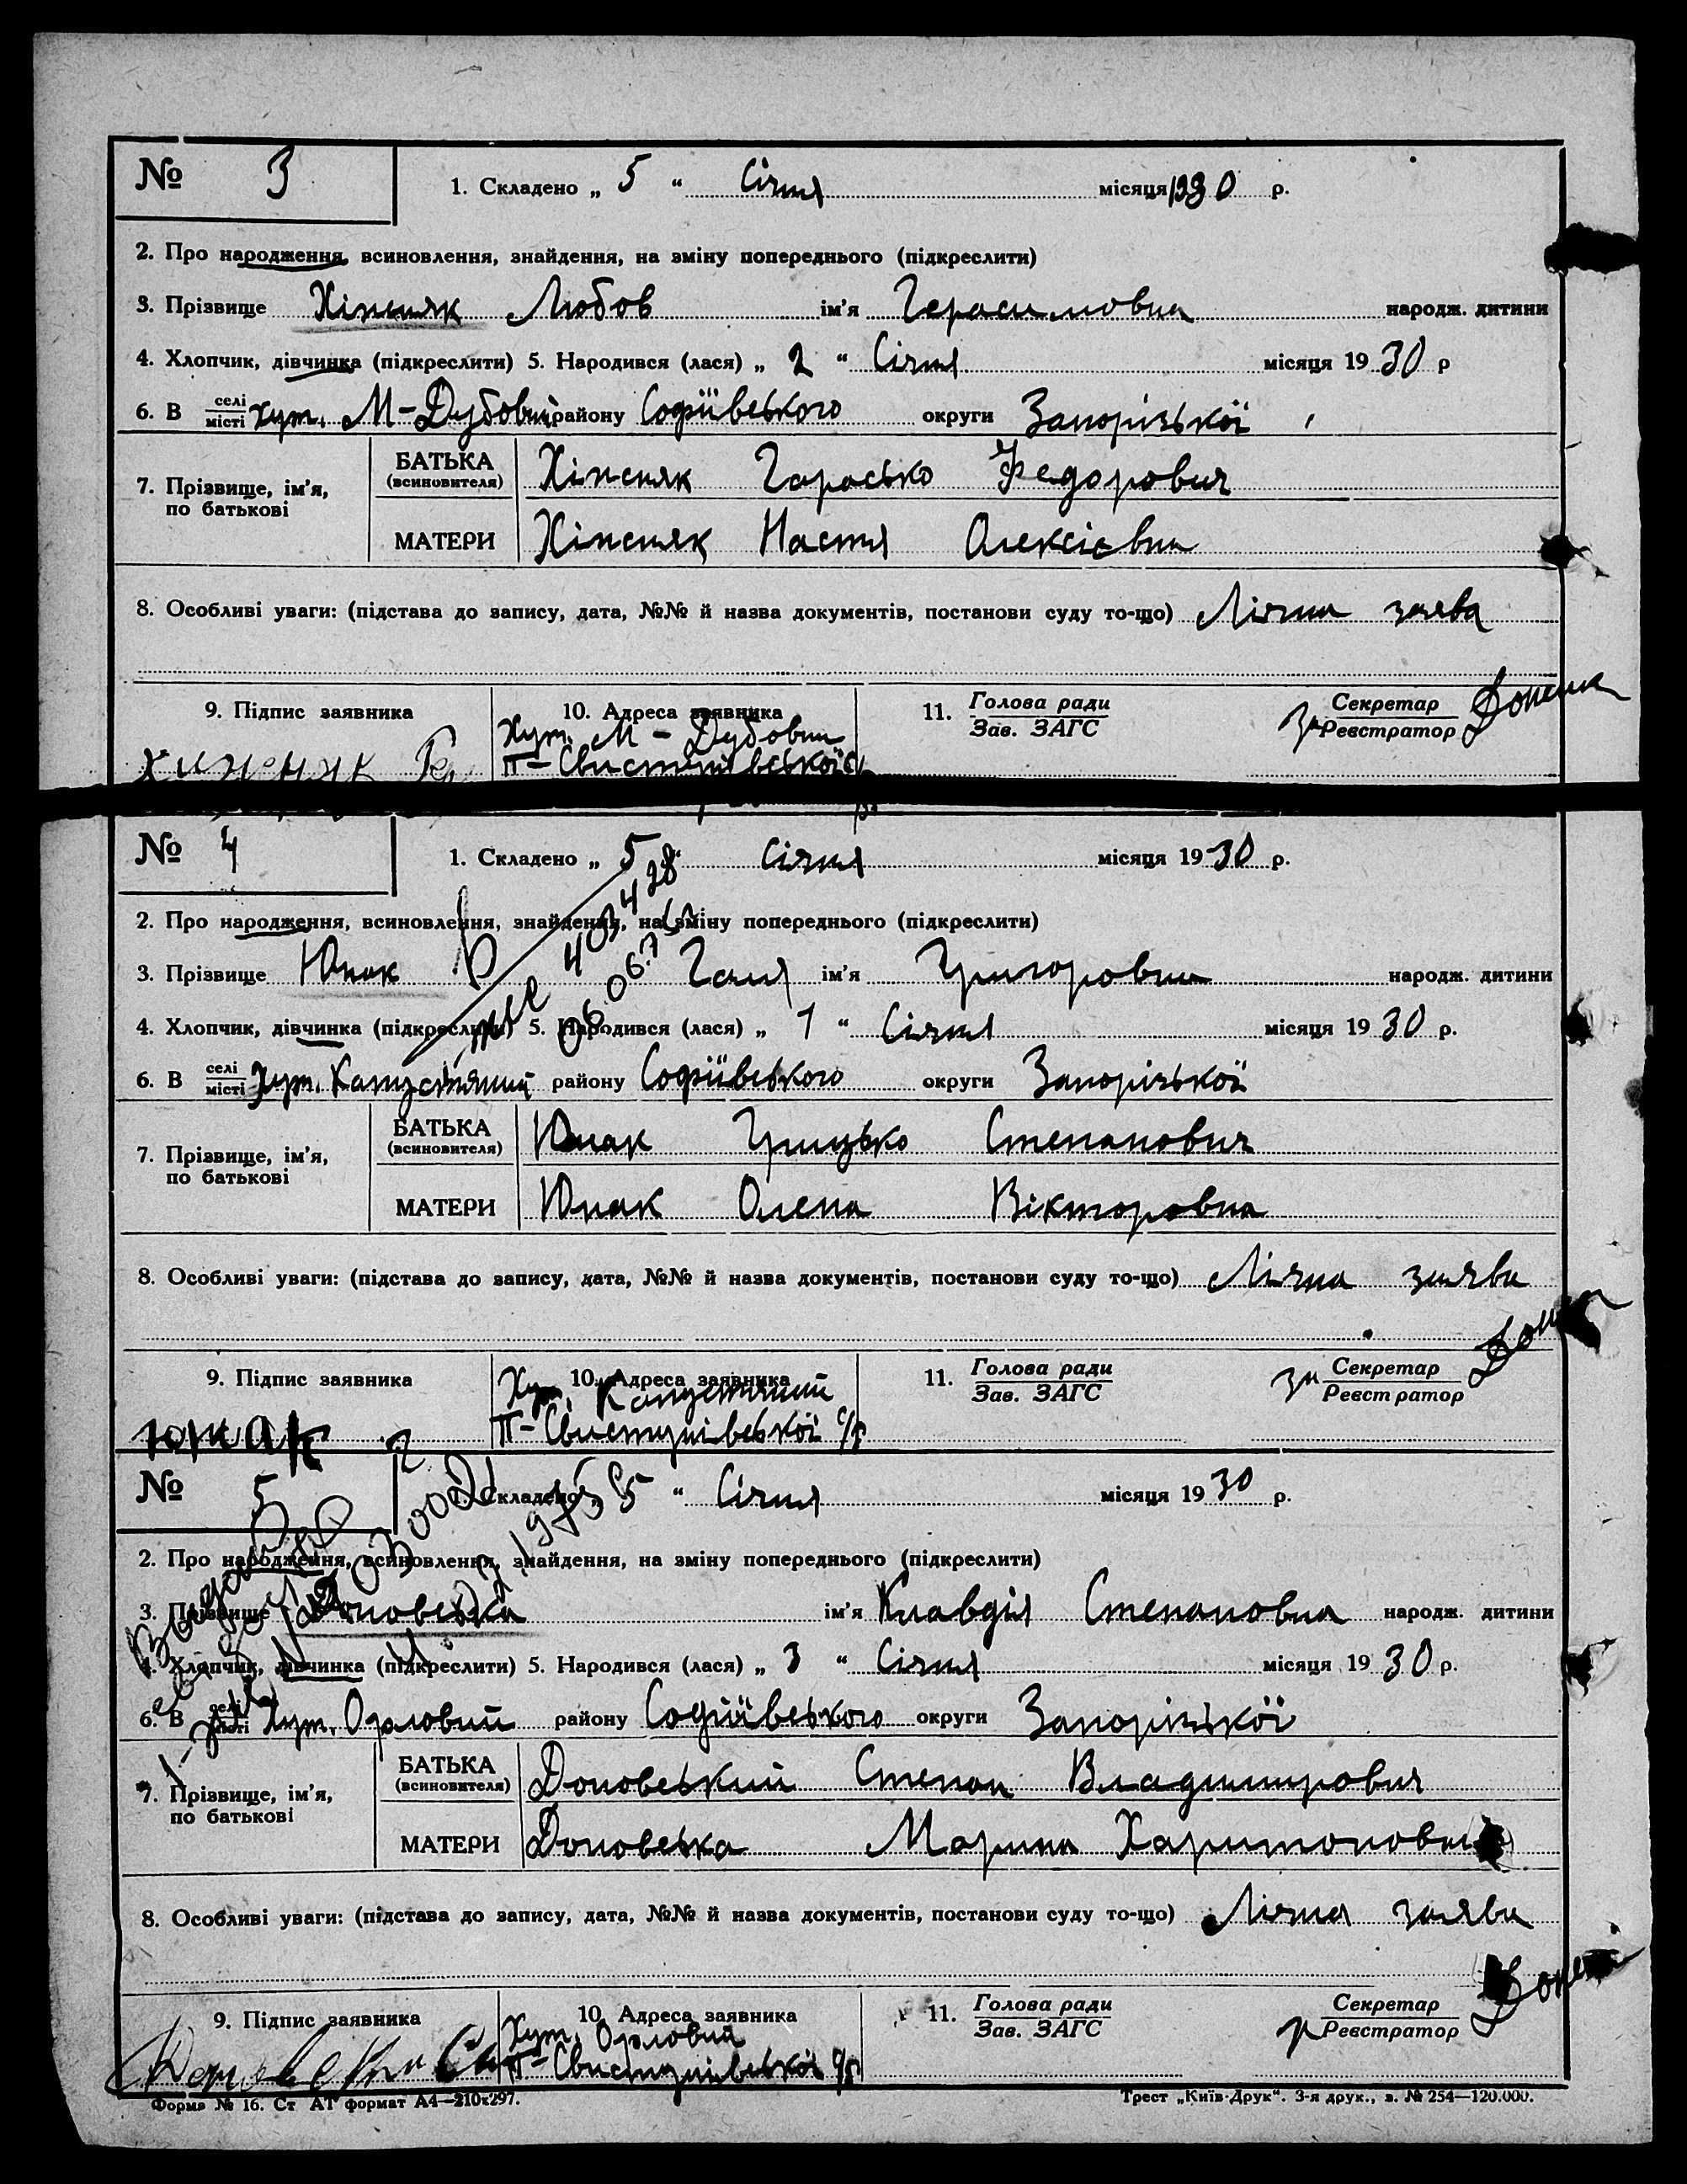 № 3
1. Складено „ 5 “ Січня місяця 1930 р.
2. Про народження, всиновлення, знайдення, на зміну попереднього (підкреслити)
3. Прізвище Хіжняк Любов ім'я Герасимовна народж. дитини
4. Хлопчик, дівчинка (підкреслити) 5. Народився (лася) „ 2 “ Січня місяця 19 30 р
6. В селі місті хут. М-Дубовий району Софіївського округи Запорізької
7. Прізвище, ім'я, по батькові
БАТЬКА (всиновителя) Хіжняк Гарасько Федорович
МАТЕРИ Хіжняк Настя Олексієвна
8. Особливі уваги: (підстава до запису, дата, №№ й назва документів, постанови суду то-що) Лічна заява
9. Підпис заявника
хижняк
10. Адреса заявника
Хут. М-Дубовий
П-Свистунівської
11. Голова ради
Зав. ЗАГС
Секретар
Реєстратор
№ 4
1. Складено „ 5 “ Січня місяця 19 30 р.
2. Про народження, всиновлення, знайдення, на зміну попереднього (підкреслити)
3. Прізвище Юнак Галя ім'я Григоровна народж. дитини
4. Хлопчик, дівчинка (підкреслити) 5. Народився (лася) „ 1 “ Січня місяця 19 30 р.
6. В селі місті Хут. Капустяний району Софіївського округи Запорізької
7. Прізвище, ім'я, по батькові
БАТЬКА (всиновителя) Юнак Грицько Степанович
МАТЕРИ Юнак Олена Вікторовна
8. Особливі уваги: (підстава до запису, дата, №№ й назва документів, постанови суду то-що) Лічна заява
9. Підпис заявника
юнак
10. Адреса заявника
Хут. Капустяний
П-Свистунівської с/р
11. Голова ради
Зав. ЗАГС
за Секретар
Реєстратор
№ 5
1. Складено „ 5 “ Січня місяця 19 30 р.
2. Про народження, всиновлення, знайдення, на зміну попереднього (підкреслити)
3. Прізвище ім'я Клавдія Степановна народж. дитини
4. Хлопчик, дівчинка (підкреслити) 5. Народився (лася) „ 3 “ Січня місяця 19 30 р.
6. В селі місті Хут. Орловий району Софіївського округи Запорізької
7. Прізвище, ім'я, по батькові
БАТЬКА (всиновителя) Доновський Степан Владимирович
МАТЕРИ Доновська Марина Харитоновна
8. Особливі уваги: (підстава до запису, дата, №№ й назва документів, постанови суду то-що) Лічна заява
9. Підпис заявника
10. Адреса заявника
Хут. Орловий
П-Свистунівської с/р
11. Голова ради
Зав. ЗАГС
Секретар
Реєстратор
Форма № 16. Ст АТ формат А4—210х297.
Трест „Київ-Друк“. 3-я друк., з. № 254—120.000.